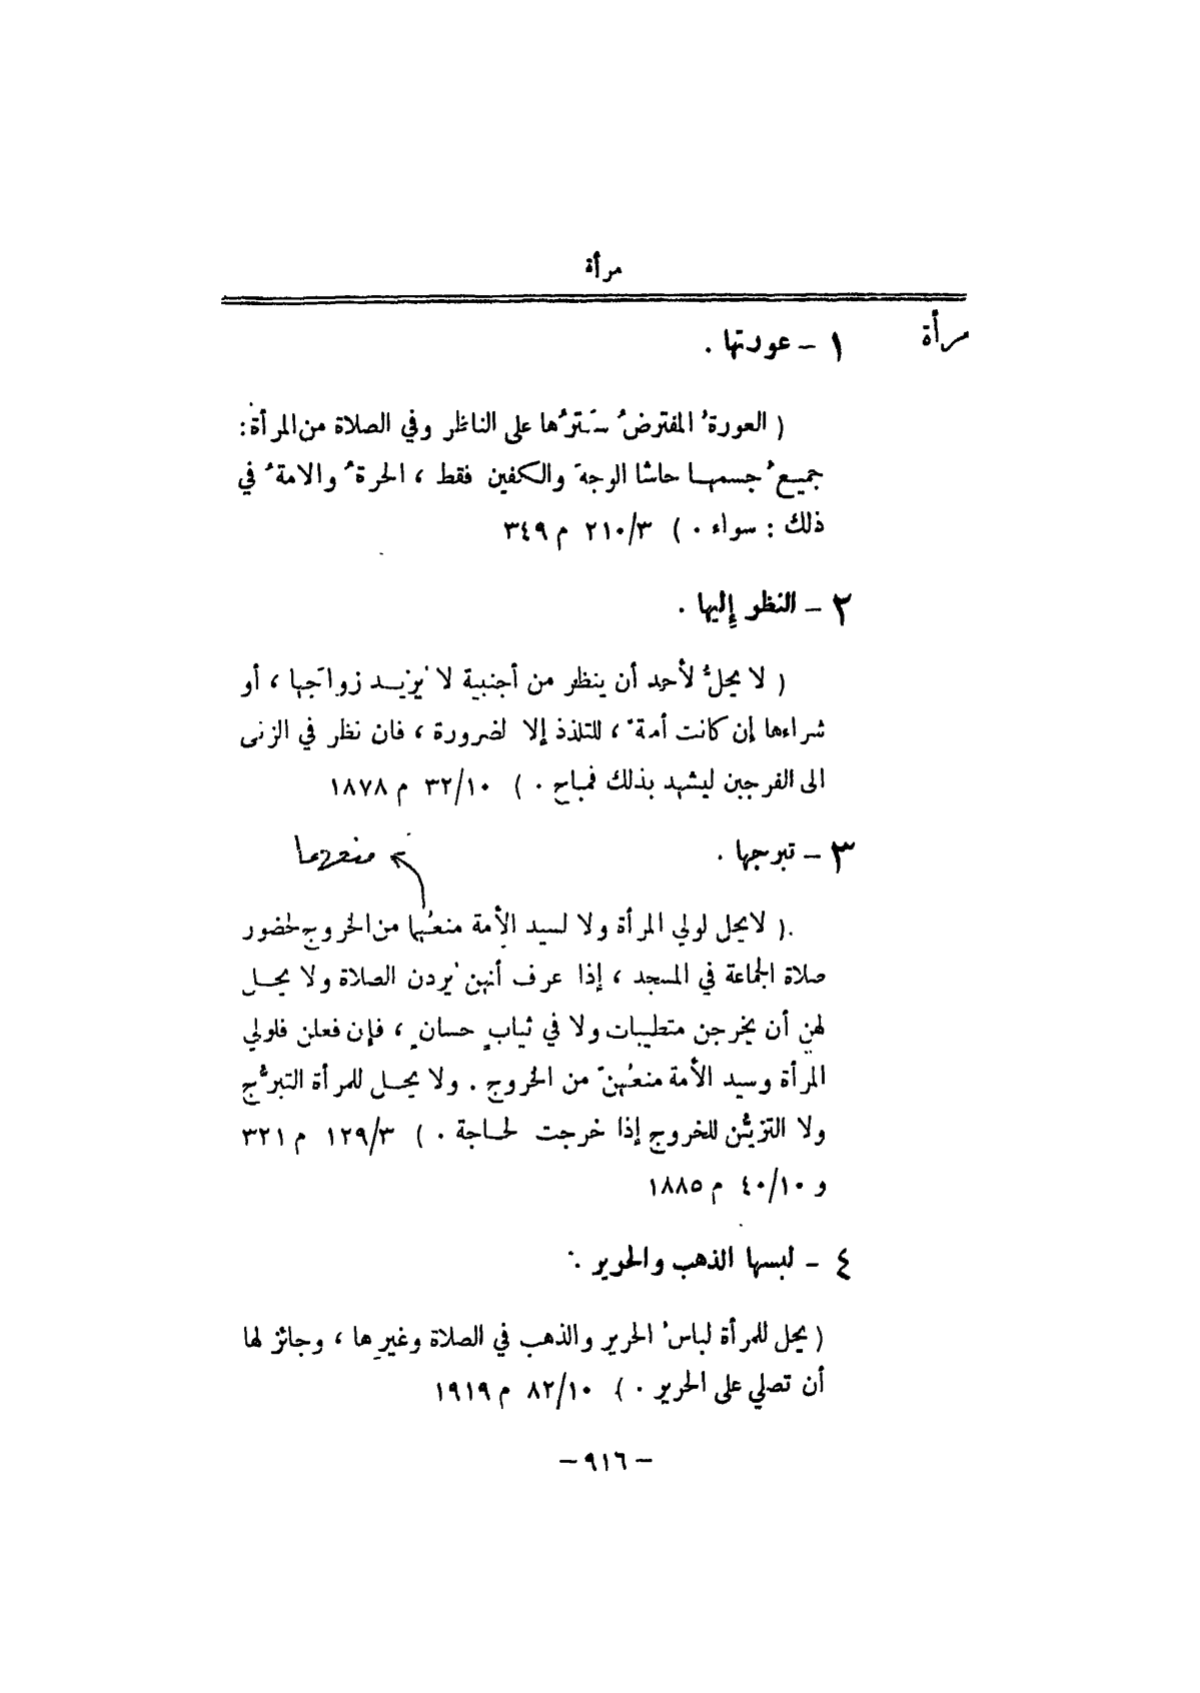 مرأة
مرأة
١ - عورتها .
( العورةُ المفترضُ سَترُها على الناظر وفي الصلاة من المرأة :
جميعُ جسمها حاشا الوجهَ والكفين فقط ، الحرةُ والامةُ في
ذلك : سواء . ) ٢١٠/٣ م ٣٤٩
٢ - النظر إليها .
( لا يحلُّ لأحد أن ينظر من أجنبية لا يُزيد زواَجها ، أو
شراءها إن كانت أمةً ، للتلذذ إلا لضرورة ، فان نظر في الزنى
الى الفرجين ليشهد بذلك فمباح . ) ٣٢/١٠ م ١٨٧٨
٣ - تبرجها .
منعهما
( لايحل لولي المرأة ولا لسيد الأمة منعُها من الخروج لحضور
صلاة الجماعة في المسجد ، إذا عرف أنهن يُردن الصلاة ولا يحل
لهن أن يخرجن متطيبات ولا في ثيابٍ حسانٍ ، فإن فعلن فلولي
المرأة وسيد الأمة منعُهنّ من الخروج . ولا يحل للمرأة التبرُّج
ولا التزيُّن للخروج إذا خرجت لحاجة . ) ١٢٩/٣ م ٣٢١
و ٤٠/١٠ م ١٨٨٥
٤ - لبسها الذهب والحرير .
( يحل للمرأة لباسُ الحرير والذهب في الصلاة وغيرِها ، وجائز لها
أن تصلي على الحرير . ) ٨٢/١٠ م ١٩١٩
- ٩١٦ -